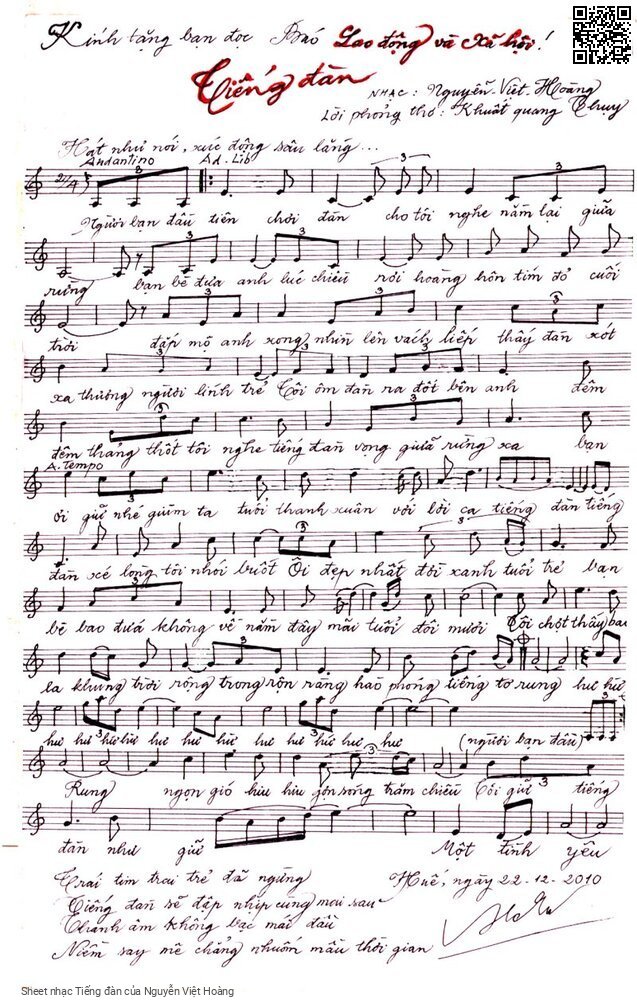 Kính tặng bạn đọc Báo Lao động và Xã hội!
Tiếng đàn
NHẠC: Nguyễn Việt Hoàng
Lời phỏng thơ: Khuất quang Thụy
Hát như nói, xúc động sâu lắng...
Andantino Ad. Lib
Người bạn đầu tiên chơi đàn cho tôi nghe nằm lại giữa
rừng bạn bè đưa anh lúc chiều rơi hoàng hôn tím đỏ cuối
trời đắp mộ anh xong nhìn lên vách liếp thấy đàn xót
xa thương người lính trẻ Tôi ôm đàn ra đốt bên anh đêm
đêm thảng thốt tôi nghe tiếng đàn vọng giữa rừng xa bạn
A. Tempo
ơi giữ nhé giùm ta tuổi thanh xuân với lời ca tiếng đàn tiếng
đàn xé lòng tôi nhói buốt Ôi đẹp nhất đời xanh tuổi trẻ bạn
bè bao đứa không về nằm đây mãi tuổi đôi mươi Tôi chợt thấy bao
la khung trời rộng trong rộn ràng hào phóng tiếng tơ rung hư hư
hư hư hư hư hư hư hư hư hư hư hư hư (người bạn đầu)
Rừng ngọn gió hiu hiu gợn sóng trăm chiều Tôi giữ tiếng
đàn như giữ Một tình yêu
Trái tim trai trẻ đã ngừng
Tiếng đàn sẽ đập nhịp cùng mai sau
Thanh âm không bạc mái đầu
Niềm say mê chẳng nhuốm màu thời gian
Huế, ngày 22-12-2010
Sheet nhạc Tiếng đàn của Nguyễn Việt Hoàng